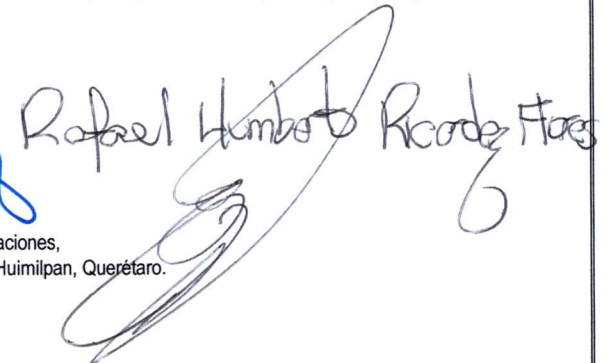 Rafael Humberto Ricardez Flores
aciones,
Huimilpan, Querétaro.